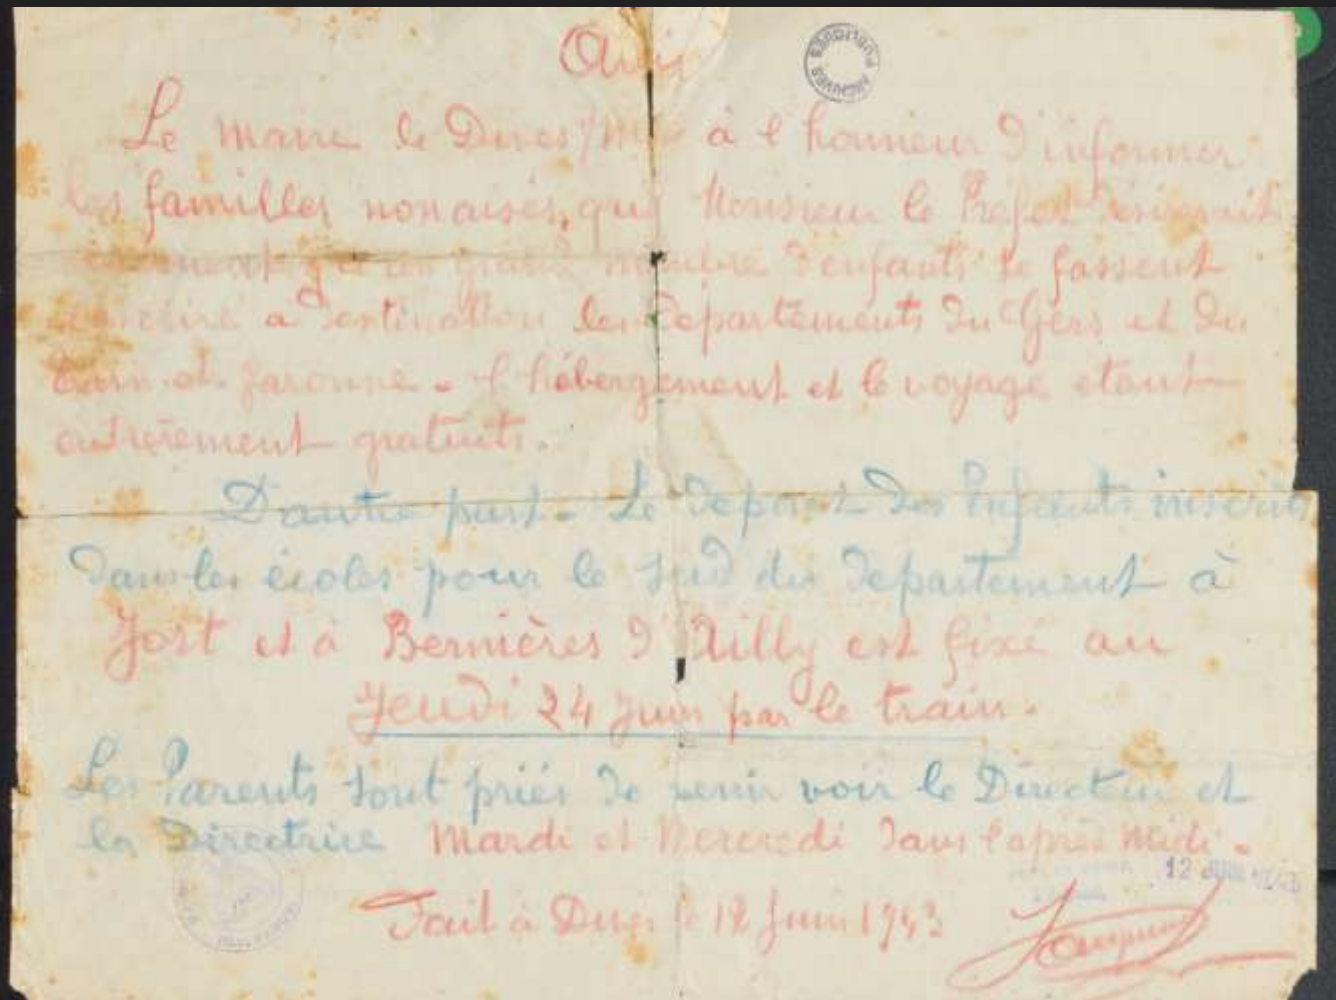 Avis
ARCHIVES PUBLIQUES
Le maire de Dives/Mer à l'honneur d'informer
les familles que Monsieur le Préfet désirerait
grand nombre d'enfants se fassent
inscrire a destination des départements du Gers et du
Tarn et Garonne - l'hébergement et le voyage étant
entièrement gratuits.
D'autre part. Le départ des Enfants inscrits
dans les écoles pour le sud du département à
Jort et à Bernières d'Ailly est fixé au
Jeudi 24 Juin par le train.
Les Parents sont priés de venir voir le Directeur et
la Directrice Mardi et Mercredi dans l'après midi -
12 JUIN 1943
Fait à Dives le 12 Juin 1943